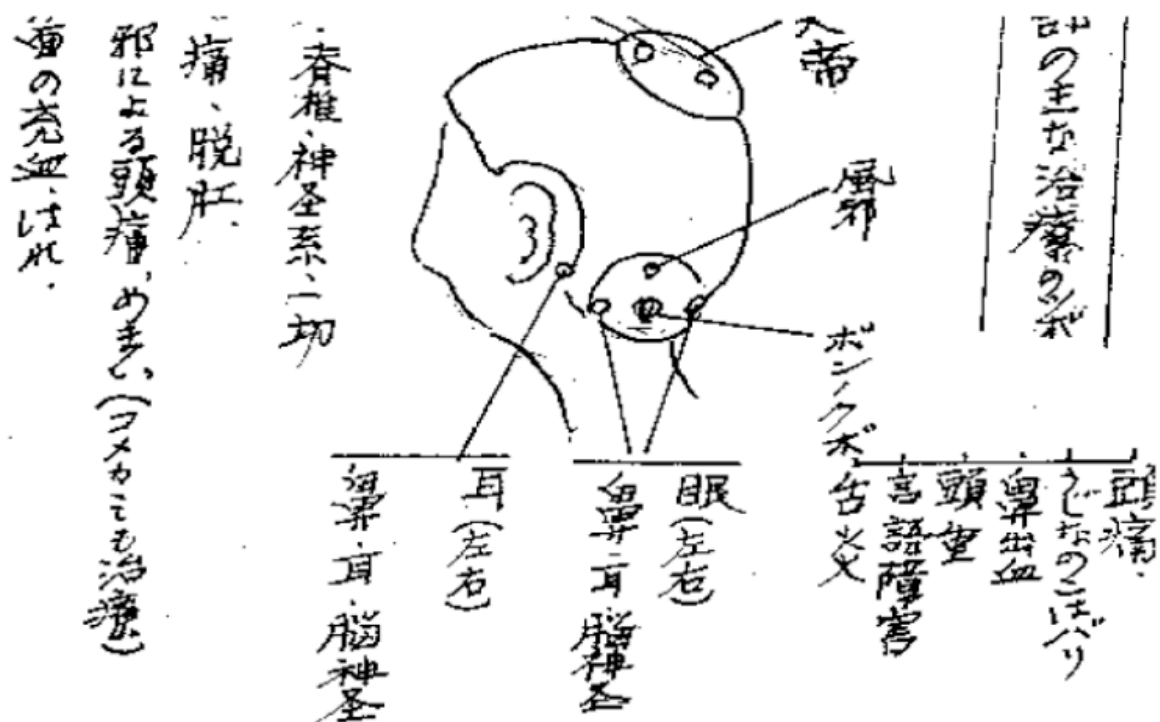 部の主な治療のツボ
天帝
風邪
ボンノクボ
頭痛・
さじなのこはバリ
鼻出血
頭重
言語障害
舌炎
眼(左右)
鼻・耳・脳神圣
耳(左右)
鼻・耳・脳神圣
・脊椎・神圣系・一切
痛、脱肛、
邪による頭痛、めまい(コメカミも治療)
歯の充血・はれ・